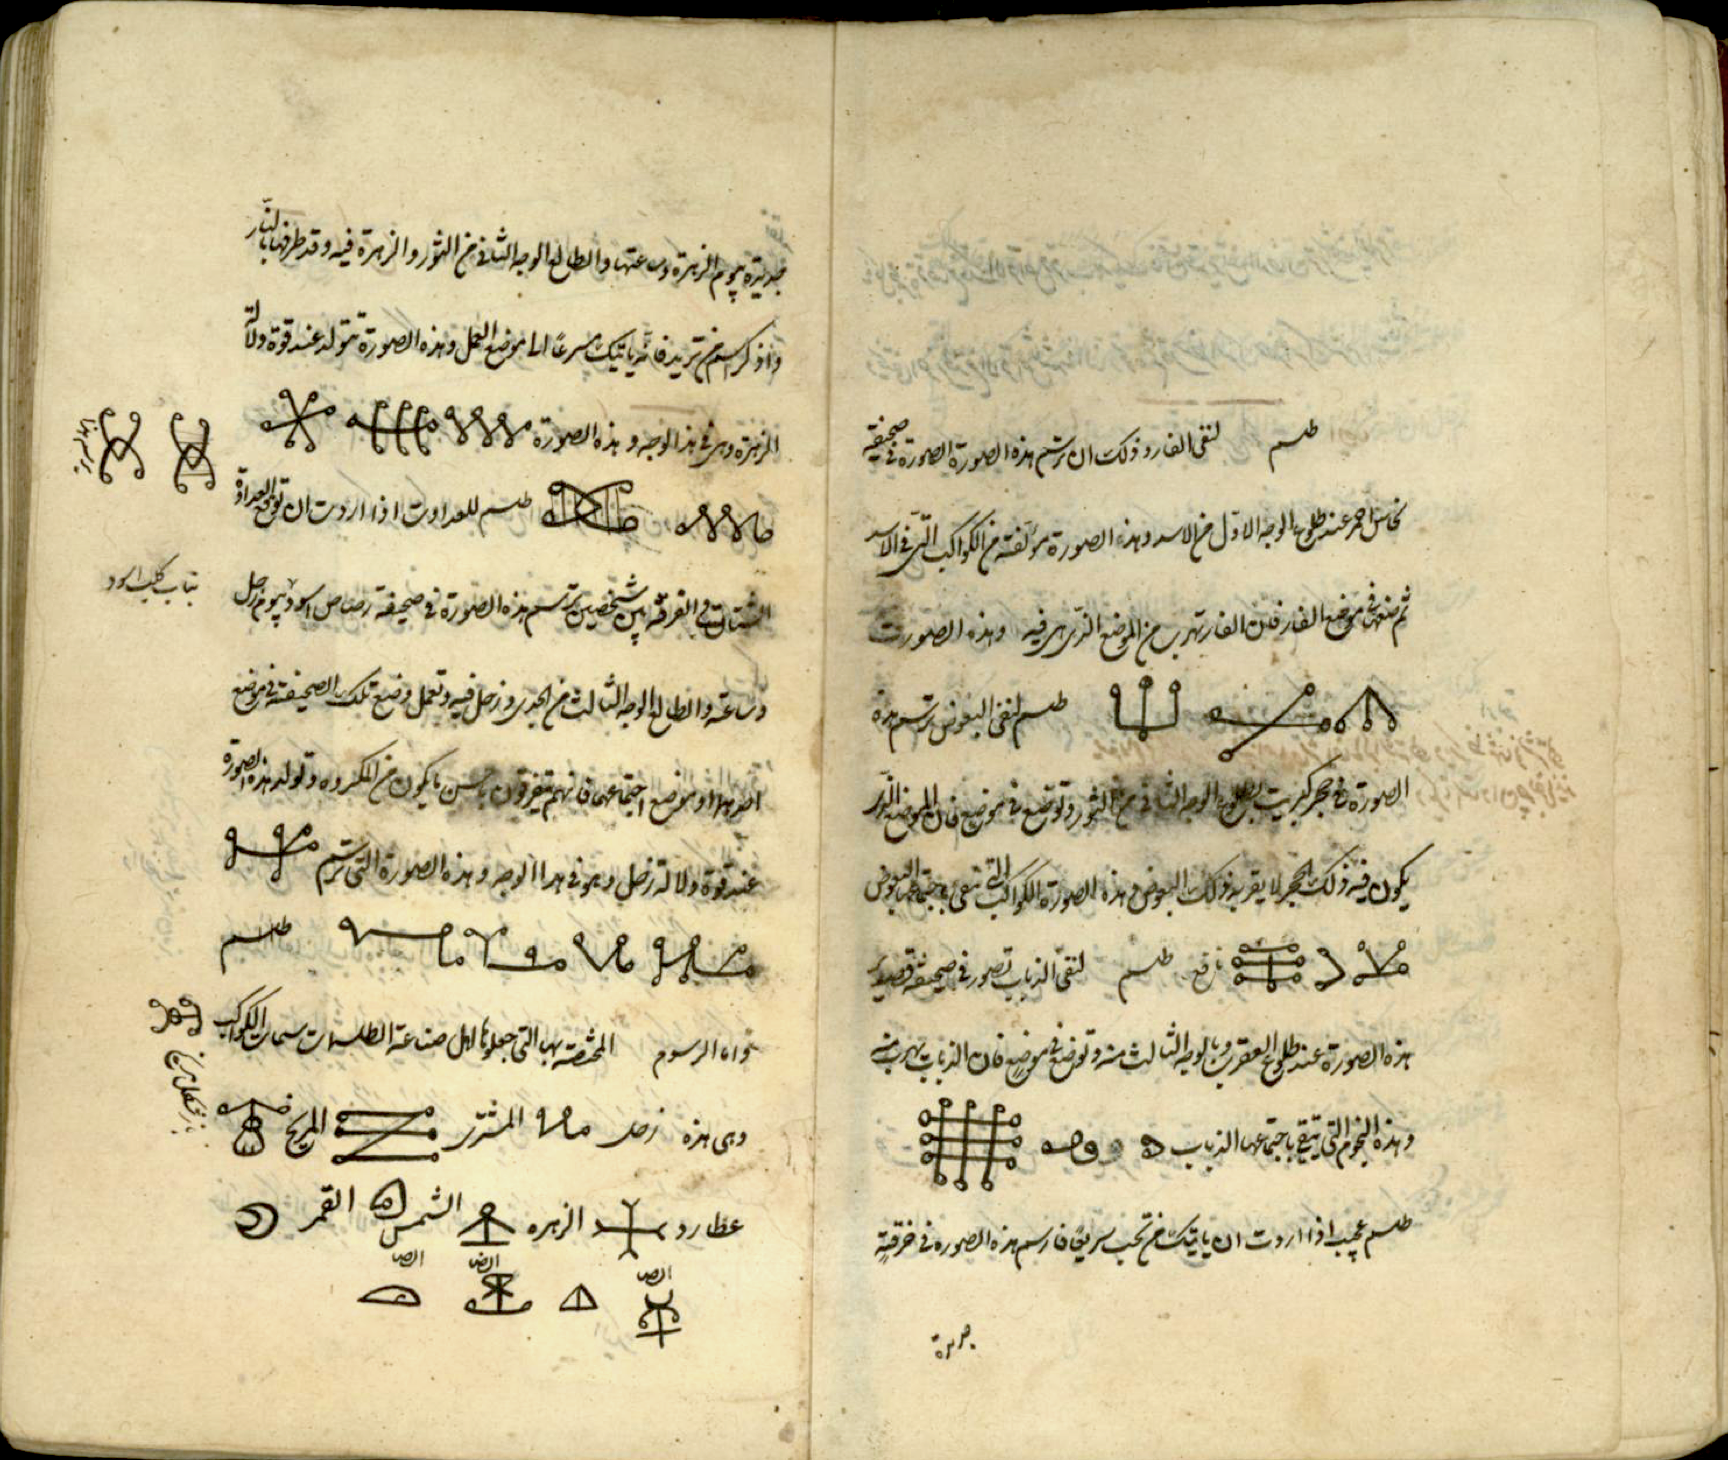 طلسم لنفى الفار وذلك ان ترتسم هذه الصورة الصورة فى صحيفة
نحاس احمر عند طلوع الوجه الاول من الاسد وهذه الصورة مؤلفة من الكواكب التى فى الاسد
ثم ضعها فى موضع الفار فان الفار تهرب من الموضع الذى هى فيه وهذه الصورت
طلسم لنفى البعوض ترتسم هذه
الصورة فى حجر كبريت بطلوع الوجه الثانى من الثور وتوضع فى موضع فان الموضع الذى
يكون فيه ذلك الحجر لا يقربه ذلك البعوض وهذه الصورة الكواكب التى تنفى باجتماعها البعوض
نافع طلسم لنفى الذباب تصور فى صحيفة قصدير
هذه الصورة عند طلوع العقرب بالوجه الثالث منه وتوضع فى موضع فان الذباب يهرب منه
وهذه النجوم التى ينتفى باجتماعها الذباب
طلسم عجيب اذا اردت ان ياتيك من تحب سريعا فارسم هذه الصورة فى خرقة
جديدة
جديدة يوم الزهرة وساعتها والطالع الوجه الثانى من الثور والزهرة فيه وقد طرفها بالنار
واذكر اسم من تريد فانه ياتيك مسرعا الى موضع العمل وهذه الصورة تتولد عند قوة دلالة
الزهرة وهى فى هذا الوجه وهذه الصورة
طلسم للعداوت اذا اردت ان توقع العداوة
الشتات فى التفرقة بين شخصين ترتسم هذه الصورة فى صحيفة رصاص اسود يوم زحل
وساعته والطالع الوجه الثالث من الجدى وزحل فيه وتعمل وضع تلك الصحيفة فى موضع
احدهما او موضع اجتماعهم فانهم يتفرقون باحسن ما يكون من المكروه وتولد هذه الصورة
عند قوة دلالة زحل وهو فى هذا الوجه وهذه الصورة التى ترتسم
طلسم
واما الرسوم المختصة بها التى جعلوها اهل صناعة الطلسمات سمات الكواكب
وهى هذه زحل المشترى المريخ
عطارد الزهره الشمس القمر
الصر الصر الصر